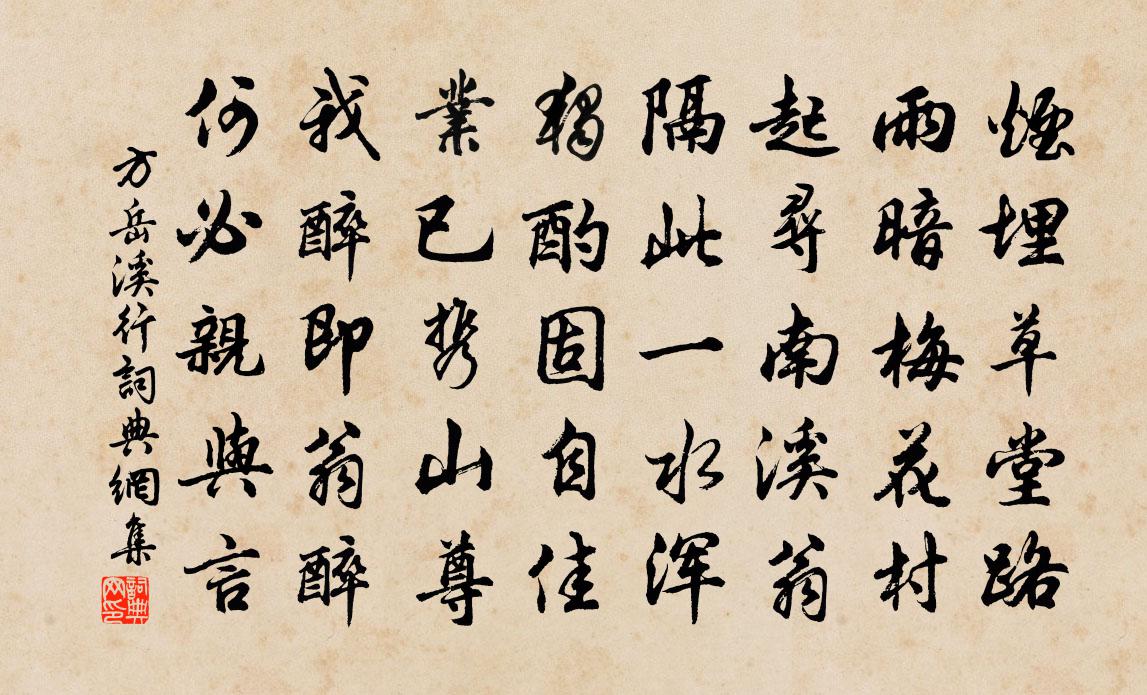 煙埋草堂路
雨暗梅花村
起尋南溪翁
隔此一水渾
獨酌固自佳
業已携山尊
我醉即翁醉
何必親與言
方岳溪行詞典網集
詞典網印